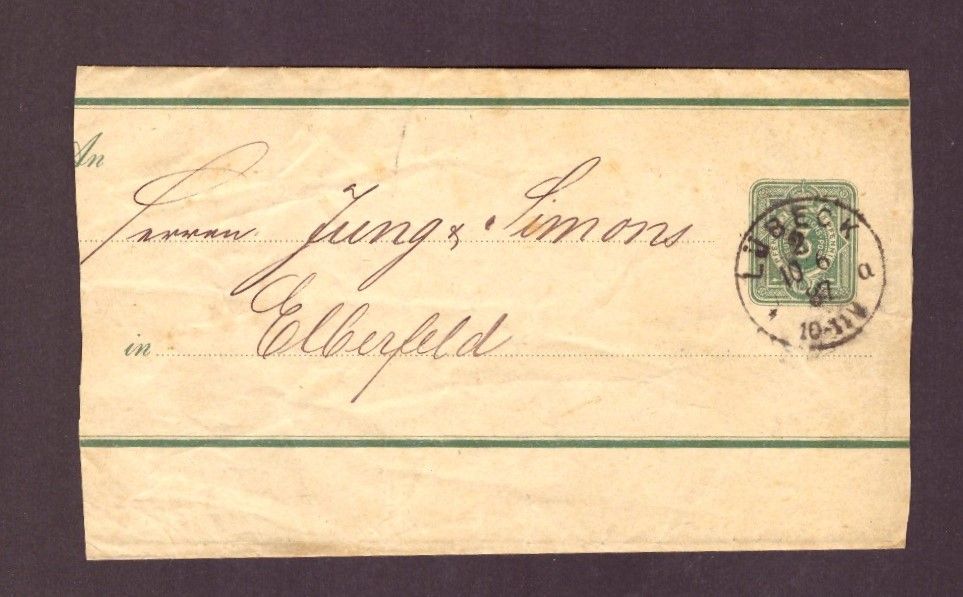 An
Herren Jung & Simons
in Elberfeld
LÜBECK
2
10 6
87
a
10-11V